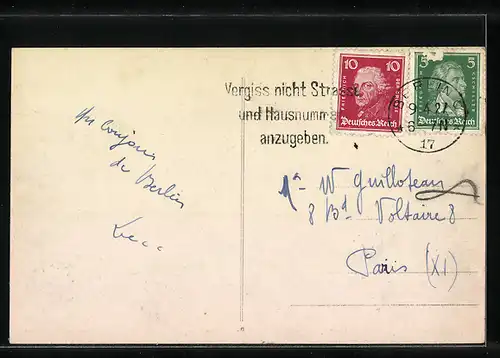 Vergiss nicht Strasse
und Hausnummer
anzugeben.
10 10
FRIEDRICH
Deutsches Reich
5 5
Deutsches Reich
BERLIN
17
de Berlin
W Guilloteau
8 Bd Voltaire 8
Paris (XI)